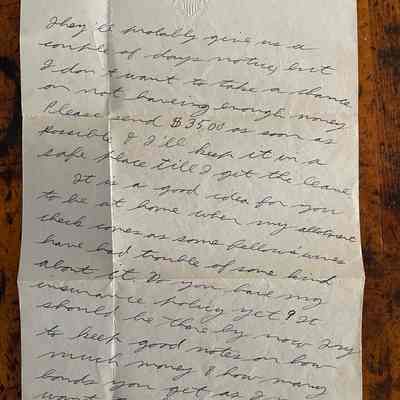 They'll probably give us a
couple of days notice but
I don't want to take a chance
on not haveing enough money
Please send $35.00 as soon as
possible & I'll keep it in a
safe place till I get the leave
It is a good idea for you
to be at home when my allotment
check comes as some fellows wives
have had trouble of some kind
about it. Do you have my
insurance policy yet? It
should be there by now Try
to keep good notes on how
much money & how many
bonds you get as I
want